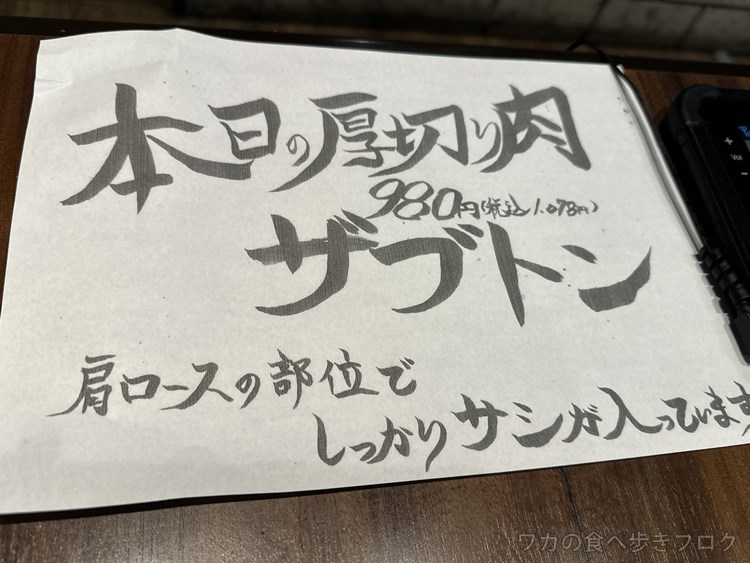 本日の厚切り肉
980円(税込1,078円)
ザブトン
肩ロースの部位で
しっかりサシが入っています
+
Vol
-
ワカの食べ歩きブログ